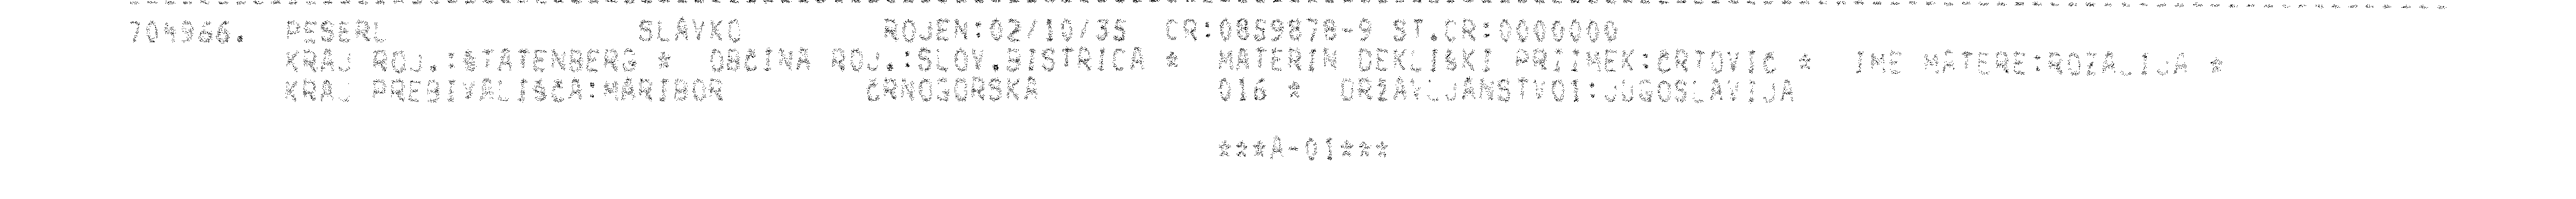 704966. PESERL SLAVKO ROJEN:02/10/35 CR:0859878-9 ST.CR:0000000
KRAJ ROJ.:STATENBERG * OBČINA ROJ.:SLOV.BISTRICA * MATERIN DEKLIŠKI PRIIMEK:ČRTOVIČ * IME MATERE:ROZALIJA *
KRAJ PREBIVALIŠČA:MARIBOR ČRNOGORSKA 016 * DRŽAVLJANSTVO1:JUGOSLAVIJA
***A-01***